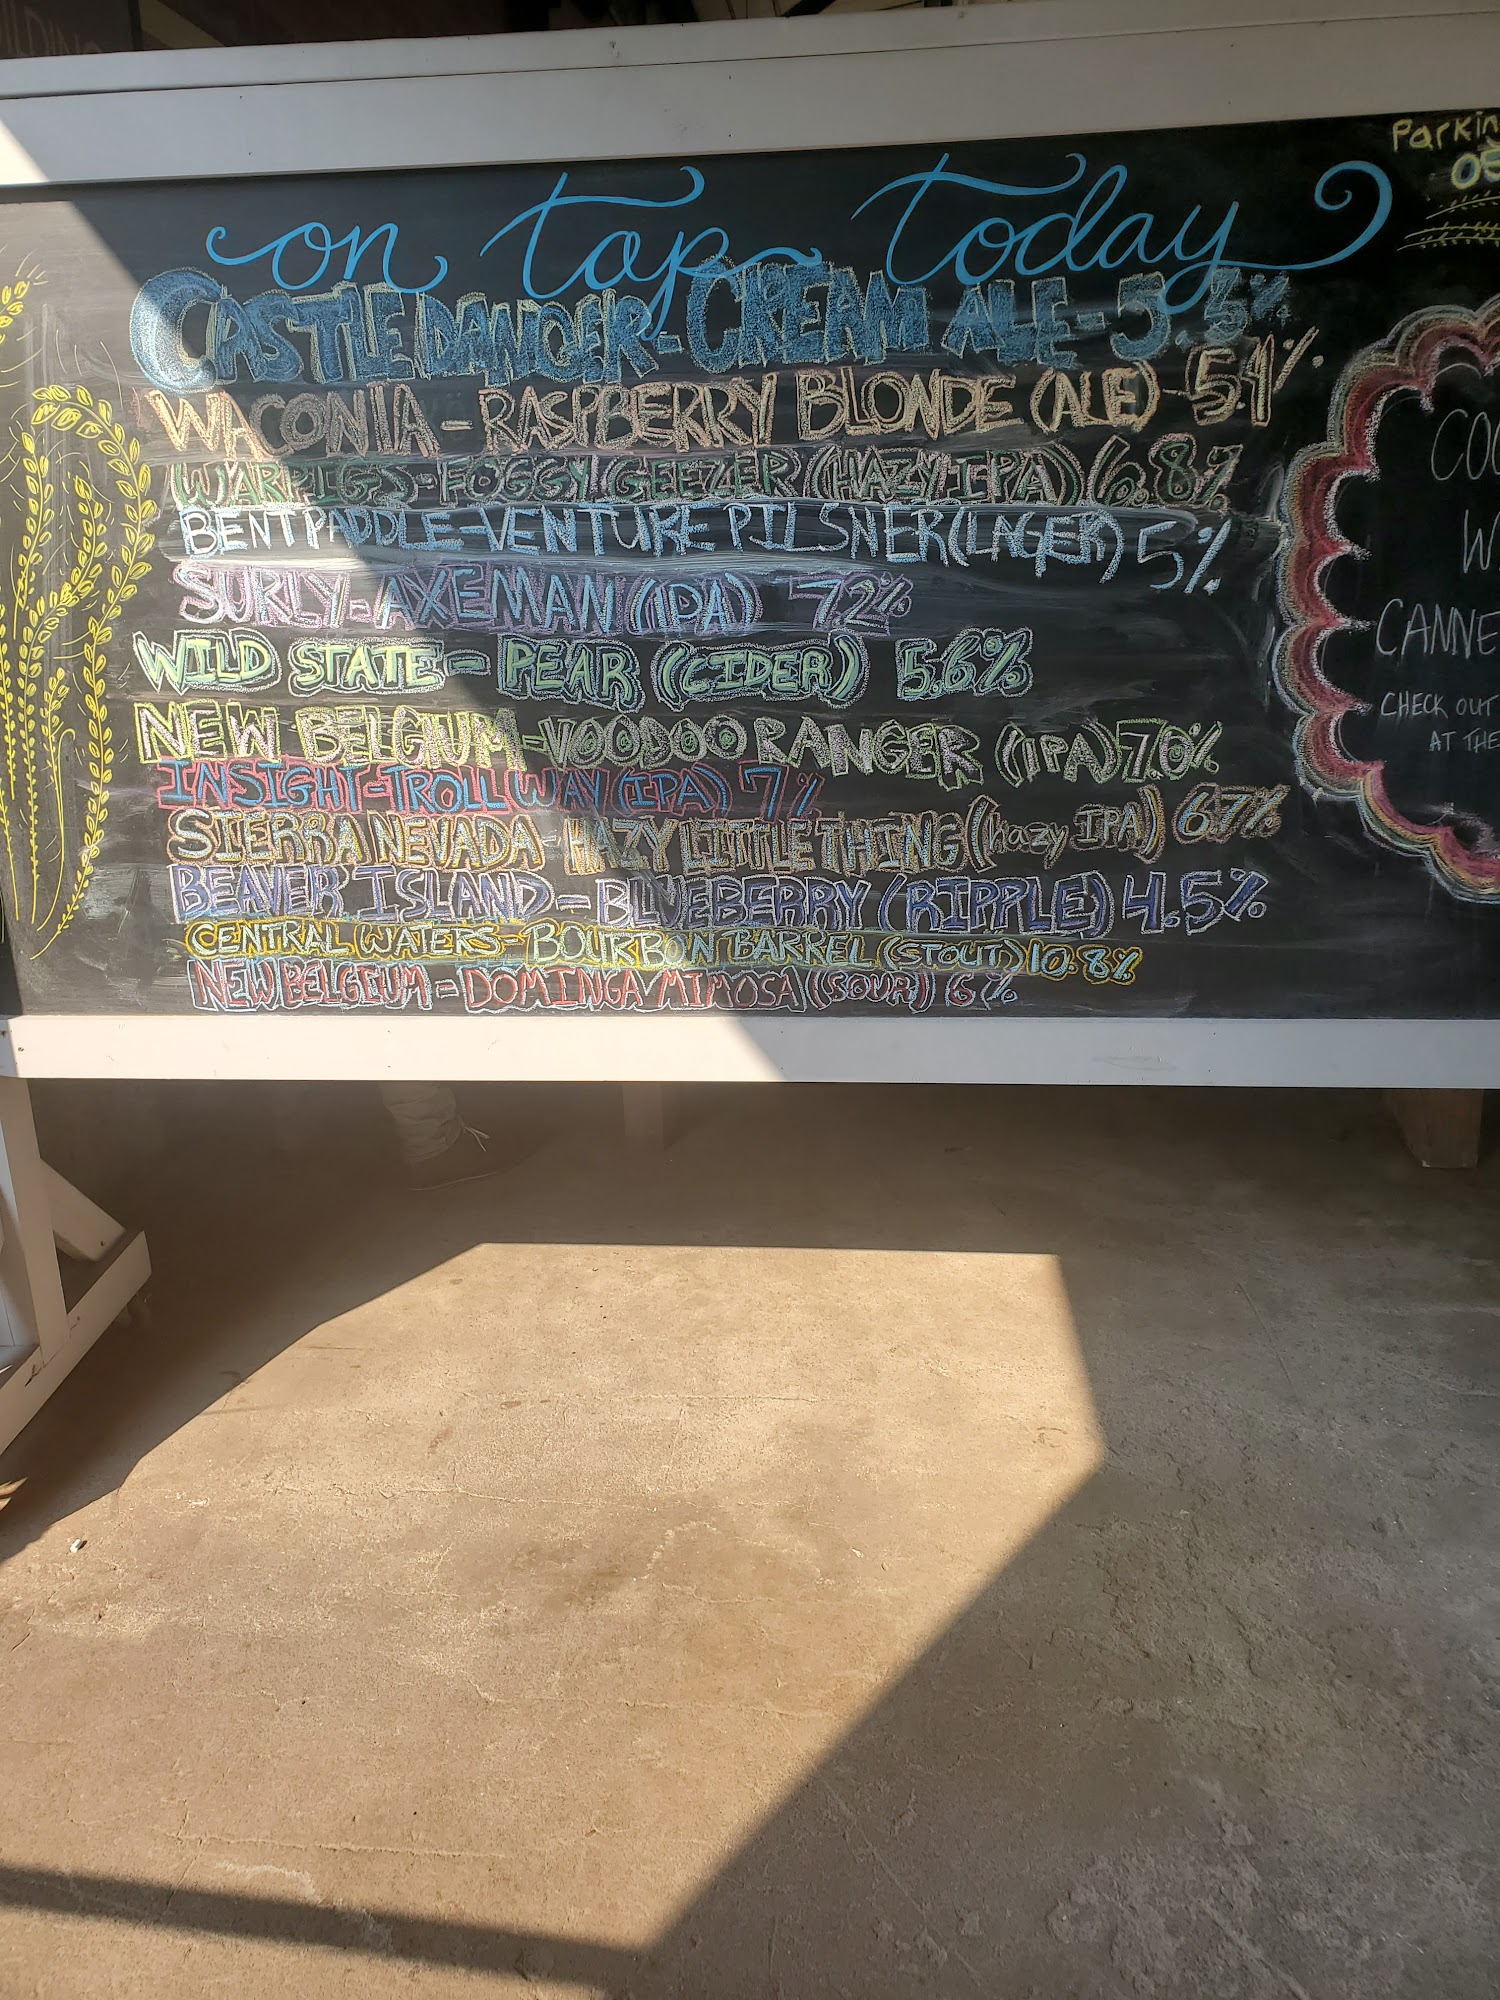 on tap today
CASTLE DANGER - CREAM ALE - 5.5%
WACONIA - RASPBERRY BLONDE (ALE) - 5.1%
WARPIGS - FOGGY GEEZER (HAZY IPA) 6.8%
BENT PADDLE - VENTURE PILSNER (LAGER) 5%
SURLY - AXEMAN (IPA) 7.2%
WILD STATE - PEAR (CIDER) 5.6%
NEW BELGIUM - VOODOO RANGER (IPA) 7.0%
INSIGHT - TROLL WAY (IPA) 7%
SIERRA NEVADA - HAZY LITTLE THING (hazy IPA) 6.7%
BEAVER ISLAND - BLUEBERRY (RIPPLE) 4.5%
CENTRAL WATERS - BOURBON BARREL (STOUT) 10.8%
NEW BELGIUM - DOMINGA MIMOSA (SOUR) 6%
Parkin
05
COO
W
CANNE
CHECK OUT
AT THE